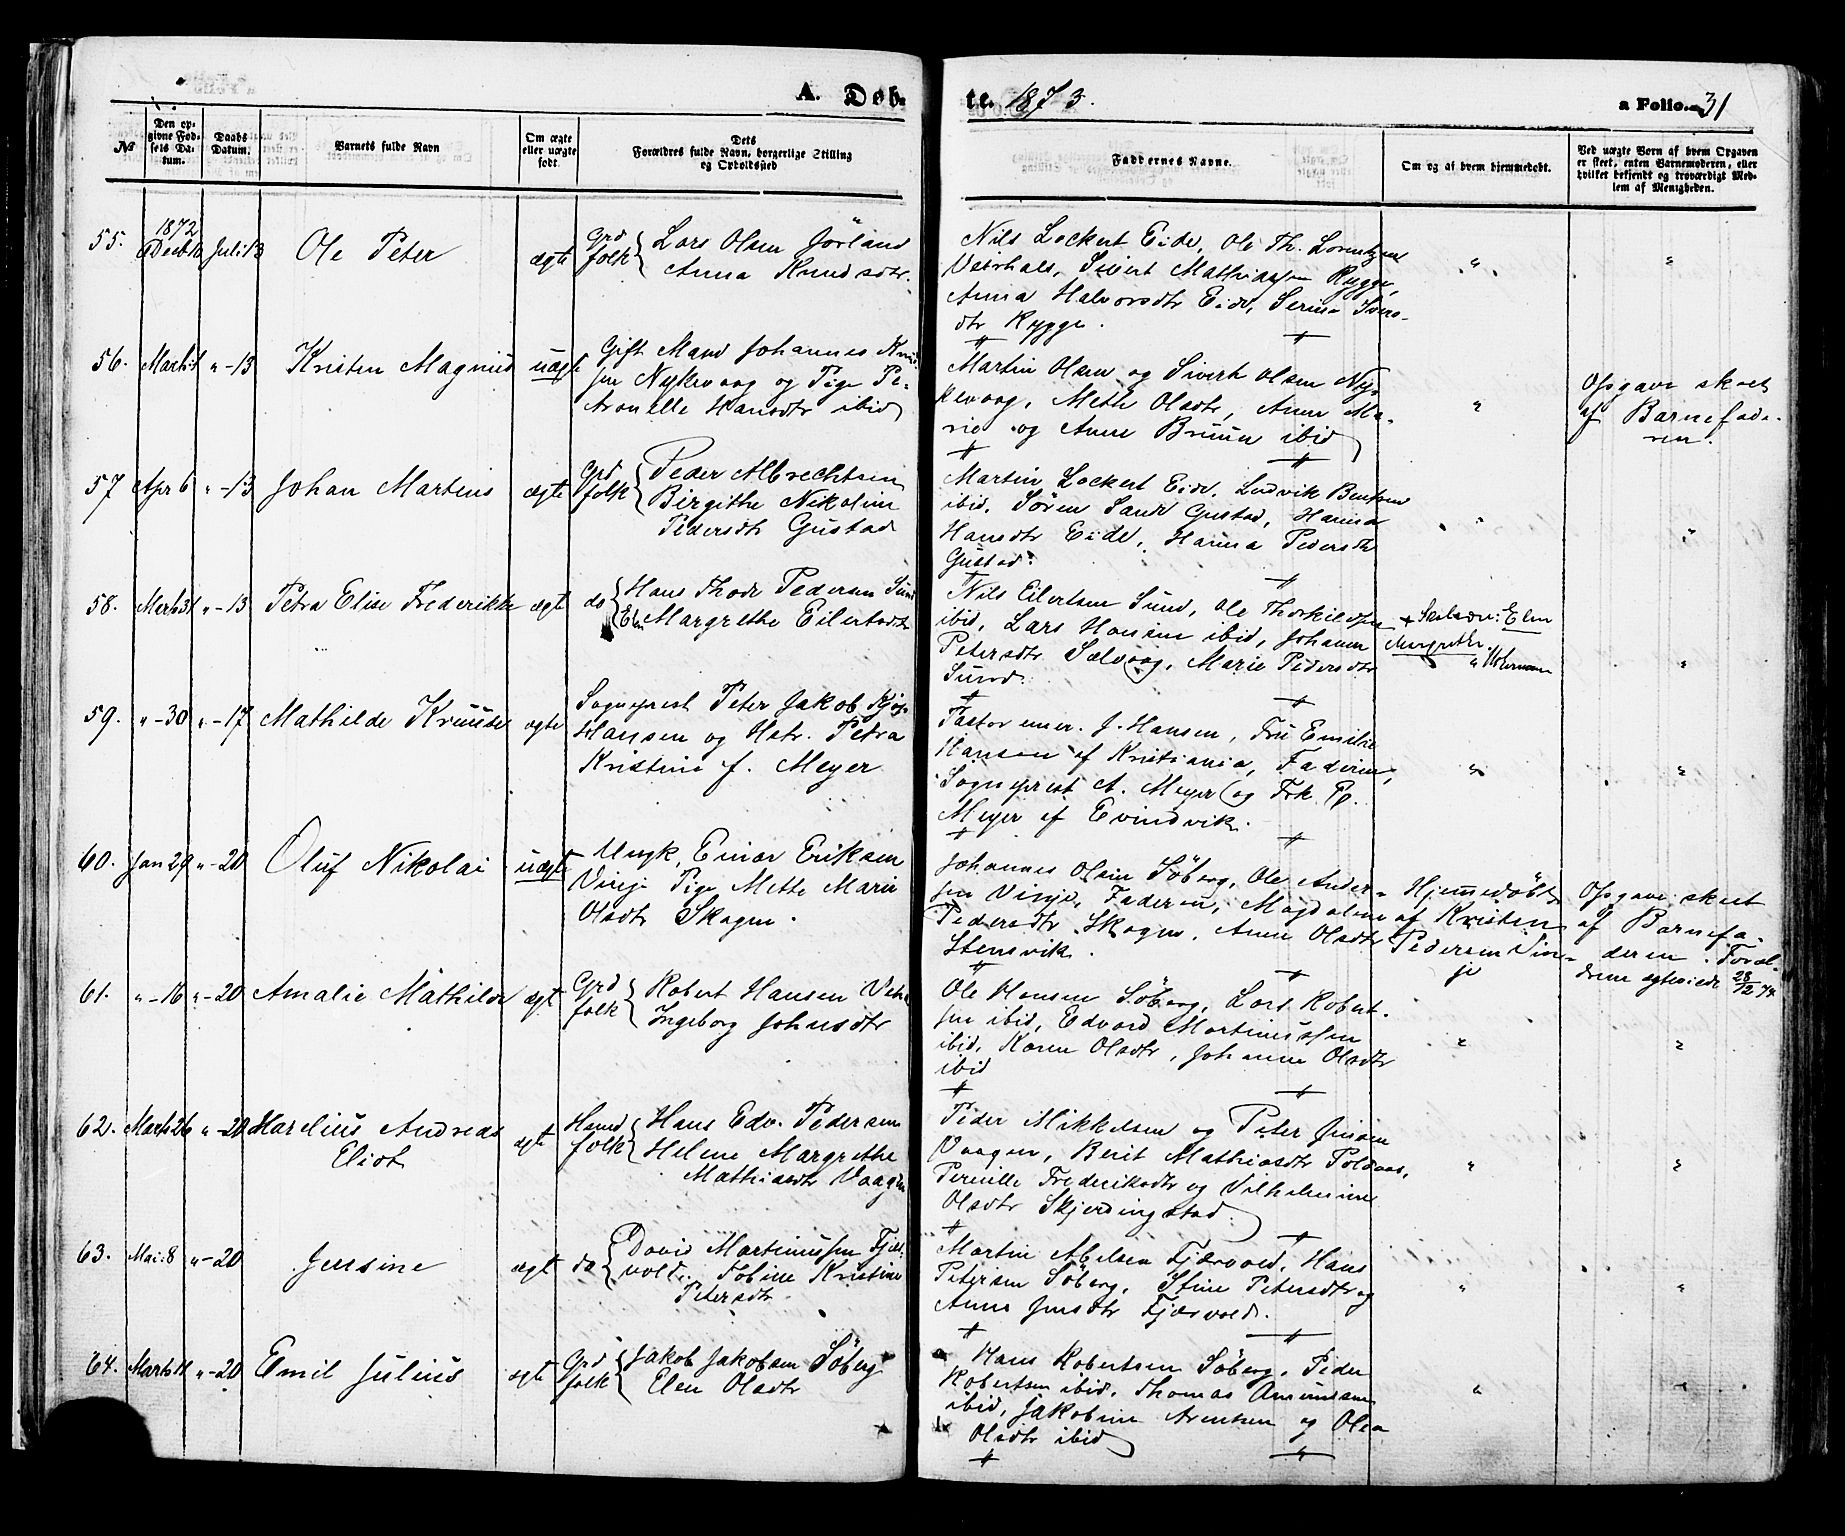 A. Døb-
te. 1873.
a Folio. 31
№
Den op-
givne Fød-
sels Da-
tum.
Daabs
Datum.
Barnets fulde Navn
Om ægte
eller uægte
født.
Dets
Forældres fulde Navn, borgerlige Stilling
og Opholdssted
Faddernes Navne.
Om og af hvem hjemmedøbt.
Ved uægte Børn af hvem Opgaven
er skeet, enten Barnemoderen, eller
hvilket bekjendt og troværdigt Med-
lem af Menigheden.
55. 1872 Decb Juli 13 Ole Peter ægte Grd folk Lars Olsen
Anna Knudsdtr.
Nils Lockert Eide, Ole Th. Lorentzen
Veirhals, Sivert Mathiassen Rygge,
Anna Halvorsdtr Eide, Serina Ivers-
dtr Rygge.
56. Marts 1 " -13 Kristen Magnus uægte Gift Mand Johannes Knud-
sen Nykvaag og Pige Pe-
tronelle Hansdtr ibid
Martin Olsen og Sivert Olsen Ny-
kvaag, Meth Olsdtr, Anne Ma-
rie og Anne Bruun ibid
Opgave skeet
af Barnefade-
ren.
57 Apr 6 " -13 Johan Martens ægte Grd folk Peder Albrechtsen
Birgithe Nikoline
Pedersdtr Gustad
Martin Lockert Eide, Ludvik Bentsen
ibid, Sören Sand Gustad, Hanna
Hansdtr Eide, Hanna Pedersdtr
Gustad.
58. Marts 31 " -13 Petra Elise Frederikke ægt do Hans Thode Pedersen Sund
Elen Margrethe Eilertsdtr
Nils Eilertsen Sund, Ole Thorkildsen
ibid, Lars Hansen ibid, Johanna
Petersdtr Sælvaag, Marie Pedersdtr
Sund.
Elen
Margrethe
59. " -30 " -17 Mathilde Kruuse ægte Sogneprest Peter Jakob
Hansen og Hstr. Petra
Kristine f. Meyer
Pastor emer. J. Hansen, Frü Emilie
Hansen af Kristiania, Faderen,
Sogneprest A. Meyer og Frk. P.
Meyer af Evindvik.
60. Jan 29 " -20 Oluf Nikolai uægte Ungk. Einar Eriksen
Vinje Pige Mette Marie
Olsdtr Skagen.
Johannes Olsen Söberg, Ole Ander-
sen Vinje, Faderen, Magdalene
Pedersdtr Skagen, Anne Olsdtr
Stensvik.
Hjemmedöbt
af Kristen
Pedersen Vin-
je
Opgave skeet
af Barnefa-
deren. Foræl-
drene egteviede 28/12 74
61. " -16 " -20 Amalie Mathilde ægt Grd folk Robert Hansen
Ingeborg Johnsdtr
Ole Hansen Söberg, Lars Robert-
sen ibid, Edvard Martinussen
ibid, Karen Olsdtr, Johanna Olsdtr
ibid
62. Marts 26 " -20 Marelius Andreas
Eliot
ægt Hmd folk Hans Edv. Pedersen
Helene Margrethe
Mathiasdtr Vaagen
Peder Mikkelsen og Peter Jensen
Vaagen, Berit Mathiasdtr
Pernille Frederiksdtr og Vilhelmine
Olsdtr Skjerdingstad.
63. Mai 8 " -20 Jensine ægt do David Martinussen Fjær-
vold. Tobine Kristine
Petersdtr.
Martin Abelsen Fjærvold, Hans
Petersen Söberg, Stine Petersdtr og
Anne Jensdtr Fjærvold.
64. Marts 11 " -20 Emil Julius ægt Grd folk Jakob Jakobsen Söberg
Elen Olsdtr
Hans Robertsen Söberg, Peder
Robertsen ibid, Thomas Amundsen
ibid, Jakobine Arentsen og Olea
Olsdtr ibid